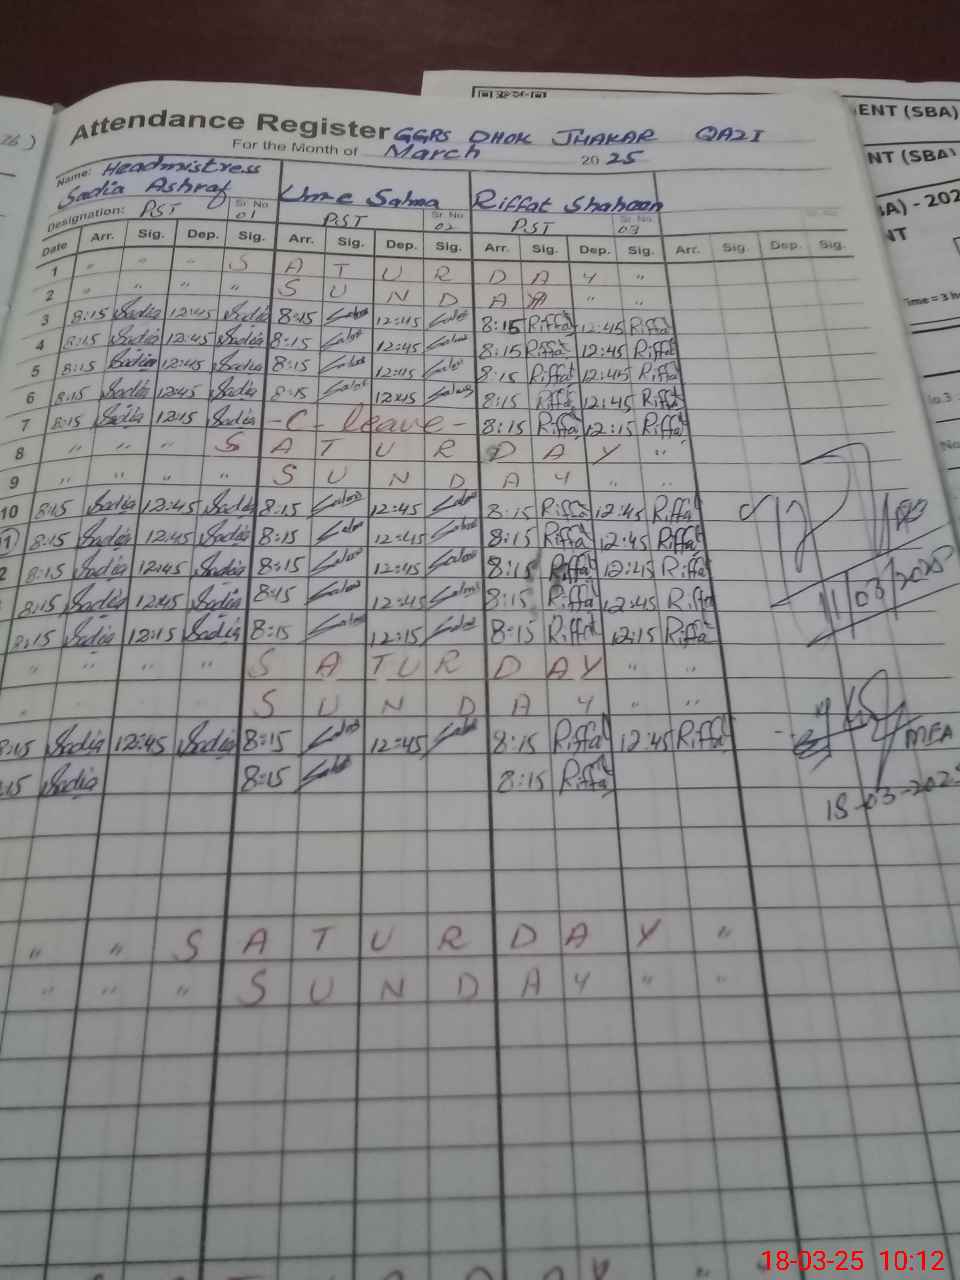 ENT (SBA)
Attendance Register GGPS DHOK JHAKAR QAZI
For the Month of March 2025
NT (SBA)
SA) - 202
NT
Name: Headmistress
Sadia Ashraf Ume Salma Riffat Shaheen
Designation: PST Sr. No. 01 PST Sr. No. 02 PST Sr. No. 03 Sr. No.
Date Arr. Sig. Dep. Sig. Arr. Sig. Dep. Sig. Arr. Sig. Dep. Sig. Arr. Sig. Dep. Sig.
1 " " " S A T U R D A Y "
2 " " " S U N D A Y " "
Time = 3 h
3 8:15 Sadia 12:45 Sadia 8:15 Salma 12:45 Salma 8:15 Riffat 12:45 Riffat
4 8:15 Sadia 12:45 Sadia 8:15 Salma 12:45 Salma 8:15 Riffat 12:45 Riffat
5 8:15 Sadia 12:45 Sadia 8:15 Salma 12:45 Salma 8:15 Riffat 12:45 Riffat
6 8:15 Sadia 12:45 Sadia 8:15 Salma 12:45 Salma 8:15 Riffat 12:45 Riffat
7 8:15 Sadia 12:15 Sadia -C- leave- 8:15 Riffat 12:15 Riffat
8 " " " S A T U R D A Y "
9 " " " S U N D A Y " "
10 8:15 Sadia 12:45 Sadia 8:15 Salma 12:45 Salma 8:15 Riffat 12:45 Riffat
1) 8:15 Sadia 12:45 Sadia 8:15 Salma 12:45 Salma 8:15 Riffat 12:45 Riffat
2 8:15 Sadia 12:45 Sadia 8:15 Salma 12:45 Salma 8:15 Riffat 12:45 Riffat
8:15 Sadia 12:45 Sadia 8:15 Salma 12:45 Salma 8:15 Riffat 12:45 Riffat
11/03/2025
8:15 Sadia 12:15 Sadia 8:15 Salma 12:15 Salma 8:15 Riffat 12:15 Riffat
" " " " S A T U R D A Y " "
" " " S U N D A Y " "
8:15 Sadia 12:45 Sadia 8:15 Salma 12:45 Salma 8:15 Riffat 12:45 Riffat
MEA
:15 Sadia 8:15 Salma 8:15 Riffat
18-03-2025
" " S A T U R D A Y "
" " " S U N D A Y " "
18-03-25 10:12